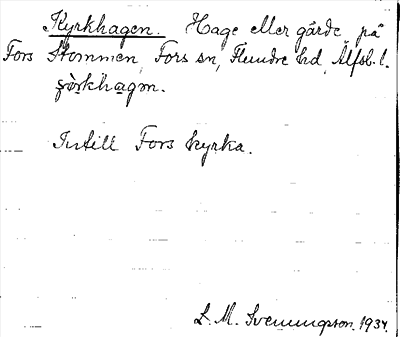 Kyrkhagen. Hage eller gärde, på
Fors Stommen, Fors sn, Flundre hd, Älfsb. l.
Intill Fors kyrka.
L. M. Svenungsson. 1934.